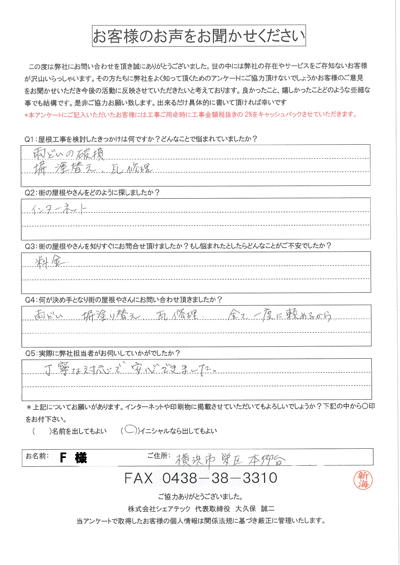 お客様のお声をお聞かせください
この度は弊社にお問い合わせを頂き誠にありがとうございました。世の中には弊社の存在やサービスをご存知ないお客様
が沢山いらっしゃいます。その方たちに弊社をよく知って頂くためのアンケートにご協力頂けないでしょうかお客様のご意見
をお聞かせいただき今後の活動に反映させていただきたいと考えております。良かったこと、嬉しかったことどのような些細な
事でも結構です。是非ご協力お願い致します。出来るだけ具体的に書いて頂ければ幸いです
*本アンケートにご記入いただいたお客様には工事ご用命時に工事金額税抜きの 2%をキャッシュバックさせていただきます。
Q1:屋根工事を検討したきっかけは何ですか?どんなことで悩まれていましたか?
雨どいの破損
塀 塗替え、瓦修理
Q2:街の屋根やさんをどのように探しましたか?
インターネット
Q3:街の屋根やさんを知りすぐにお問合せ頂けましたか?もし悩まれたとしたらどんなことがご不安でしたか?
料金
Q4:何が決め手となり街の屋根やさんにお問い合わせ頂きましたか?
雨どい 塀塗り替え 瓦修理 全て一度に頼めるから
Q5:実際に弊社担当者がお伺いしていかがでしたか?
丁寧な対応で安心できました。
*上記についてお願いがあります。インターネットや印刷物に掲載させていただいてもよろしいでしょうか?下記の中から〇印
をお付下さい。
( )名前を出してもよい (〇)イニシャルなら出してもよい
お名前: F 様 ご住所: 横浜市栄区本郷台
FAX 0438-38-3310
新海
ご協力ありがとうございました。
株式会社シェアテック 代表取締役 大久保 誠二
当アンケートで取得したお客様の個人情報は関係法規に基づき厳正に管理いたします。